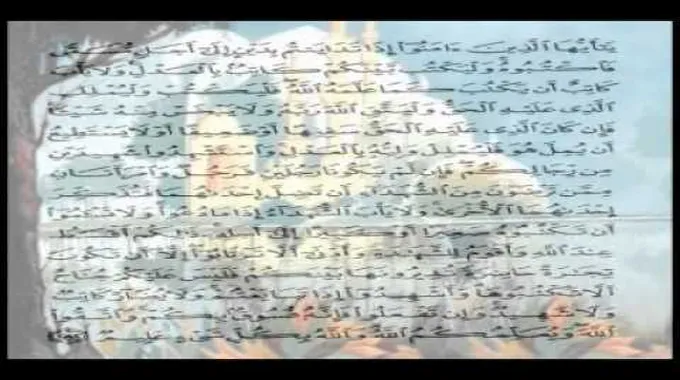 يَٰٓأَيُّهَا ٱلَّذِينَ ءَامَنُوٓا۟ إِذَا تَدَايَنتُم بِدَيْنٍ إِلَىٰٓ أَجَلٍ مُّسَمًّى
فَٱكْتُبُوهُ وَلْيَكْتُب بَّيْنَكُمْ كَاتِبٌۢ بِٱلْعَدْلِ وَلَا يَأْبَ
كَاتِبٌ أَن يَكْتُبَ كَمَا عَلَّمَهُ ٱللَّهُ فَلْيَكْتُبْ وَلْيُمْلِلِ
ٱلَّذِى عَلَيْهِ ٱلْحَقُّ وَلْيَتَّقِ ٱللَّهَ رَبَّهُۥ وَلَا يَبْخَسْ مِنْهُ شَيْـًٔا
فَإِن كَانَ ٱلَّذِى عَلَيْهِ ٱلْحَقُّ سَفِيهًا أَوْ ضَعِيفًا أَوْ لَا يَسْتَطِيعُ
أَن يُمِلَّ هُوَ فَلْيُمْلِلْ وَلِيُّهُۥ بِٱلْعَدْلِ وَٱسْتَشْهِدُوا۟ شَهِيدَيْنِ
مِن رِّجَالِكُمْ فَإِن لَّمْ يَكُونَا رَجُلَيْنِ فَرَجُلٌ وَٱمْرَأَتَانِ
مِمَّن تَرْضَوْنَ مِنَ ٱلشُّهَدَآءِ أَن تَضِلَّ إِحْدَىٰهُمَا فَتُذَكِّرَ
إِحْدَىٰهُمَا ٱلْأُخْرَىٰ وَلَا يَأْبَ ٱلشُّهَدَآءُ إِذَا مَا دُعُوا۟ وَلَا تَسْـَٔمُوٓا۟
أَن تَكْتُبُوهُ صَغِيرًا أَوْ كَبِيرًا إِلَىٰٓ أَجَلِهِۦ ذَٰلِكُمْ أَقْسَطُ
عِندَ ٱللَّهِ وَأَقْوَمُ لِلشَّهَٰدَةِ وَأَدْنَىٰٓ أَلَّا تَرْتَابُوٓا۟ إِلَّآ أَن تَكُونَ
تِجَٰرَةً حَاضِرَةً تُدِيرُونَهَا بَيْنَكُمْ فَلَيْسَ عَلَيْكُمْ جُنَاحٌ
أَلَّا تَكْتُبُوهَا وَأَشْهِدُوٓا۟ إِذَا تَبَايَعْتُمْ وَلَا يُضَآرَّ كَاتِبٌ
وَلَا شَهِيدٌ وَإِن تَفْعَلُوا۟ فَإِنَّهُۥ فُسُوقٌۢ بِكُمْ وَٱتَّقُوا۟
ٱللَّهَ وَيُعَلِّمُكُمُ ٱللَّهُ وَٱللَّهُ بِكُلِّ شَىْءٍ عَلِيمٌ